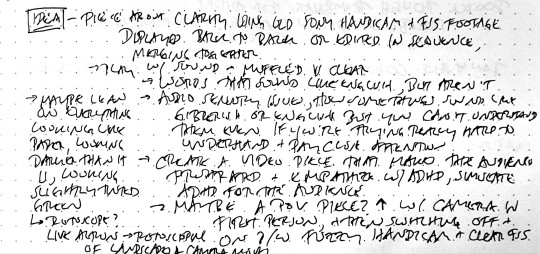 IDEA - PIECE ABOUT CLARITY USING OLD SONY HANDICAM + FJS FOOTAGE
DISPLAYED BACK TO BACK OR EDITED IN SEQUENCE,
MERGING TOGETHER
→ PLAY W/ SOUND - MUFFLED V CLEAR
→ WORDS THAT SOUND LIKE ENGLISH, BUT AREN'T
→ AUDIO SENSORY ISSUES, HOW SOMETHINGS SOUND LIKE
GIBBERISH OR ENGLISH BUT YOU CAN'T UNDERSTAND
THEM EVEN IF YOU'RE TRYING REALLY HARD TO
UNDERSTAND + PAY CLOSE ATTENTION
→ CREATE A VIDEO PIECE THAT MAKES THE AUDIENCE
+ EMPATHIZE W/ ADHD, SIMULATE
ADHD FOR THE AUDIENCE
→ MAYBE A POV PIECE? ↑ W/ CAMERA IN
FIRST PERSON, + THEN SWITCHING OFF +
ON B/W FUZZY HANDICAM + CLEAR FJS
→ MAYBE LEAN
ON EVERYTHING
LOOKING LIKE
PAPER, LOOKING
DARKER THAN IT
IS, LOOKING
SLIGHTLY TINTED
GREEN
↳ ROTOSCOPE?
LIVE ACTION → ROTOSCOPING
OF LANDSCAPE + CAMERA